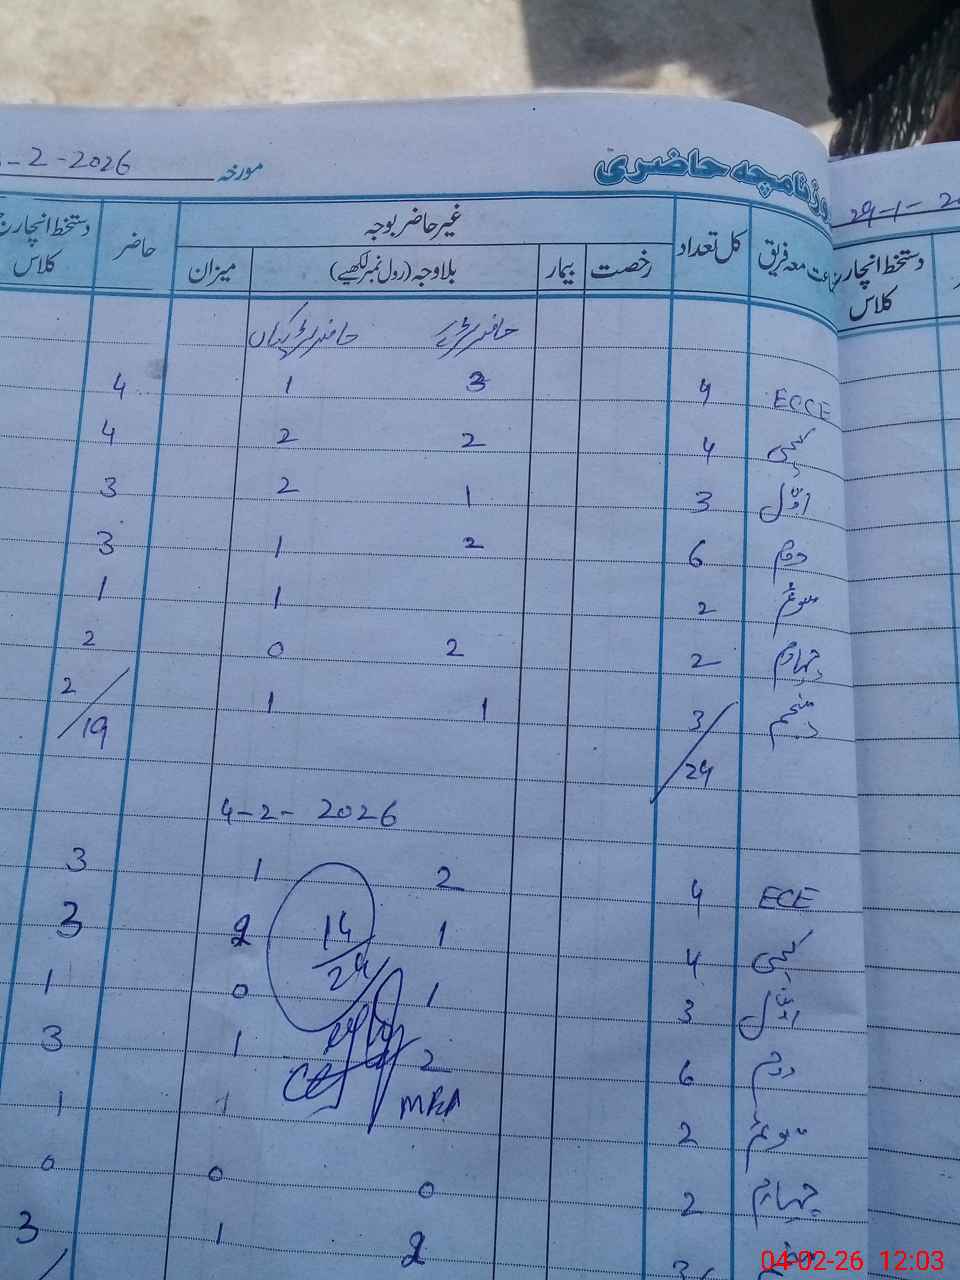 روزنامچہ حاضری مورخہ -2-2026
29-1-20
جماعت معہ فریق کل تعداد غیر حاضر بوجہ حاضر دستخط انچارج کلاس
رخصت بیمار بلاوجہ (رول نمبر لکھیے) میزان
دستخط انچارج کلاس
ECCE 4 3 1 4
کچی 4 2 2 4
اوّل 3 1 2 3
دوم 6 2 1 3
سوئم 2 1 1
چہارم 2 2 0 2
پنجم 3 1 1 2
24 19
4-2-2026
ECE 4 2 1 3
کچی 4 1 2 3
14
24
اوّل 3 1 0 1
دوم 6 2 1 3
MEA
سوئم 2 1 1
چہارم 2 0 0 0
2 1 3
04-02-26 12:03